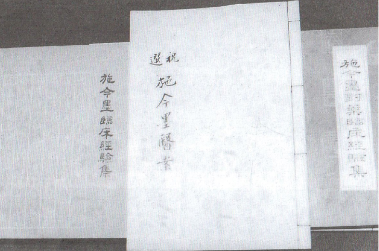 施今墨對藥臨床經驗集
祝選
施今墨醫案
施今墨臨床經驗集